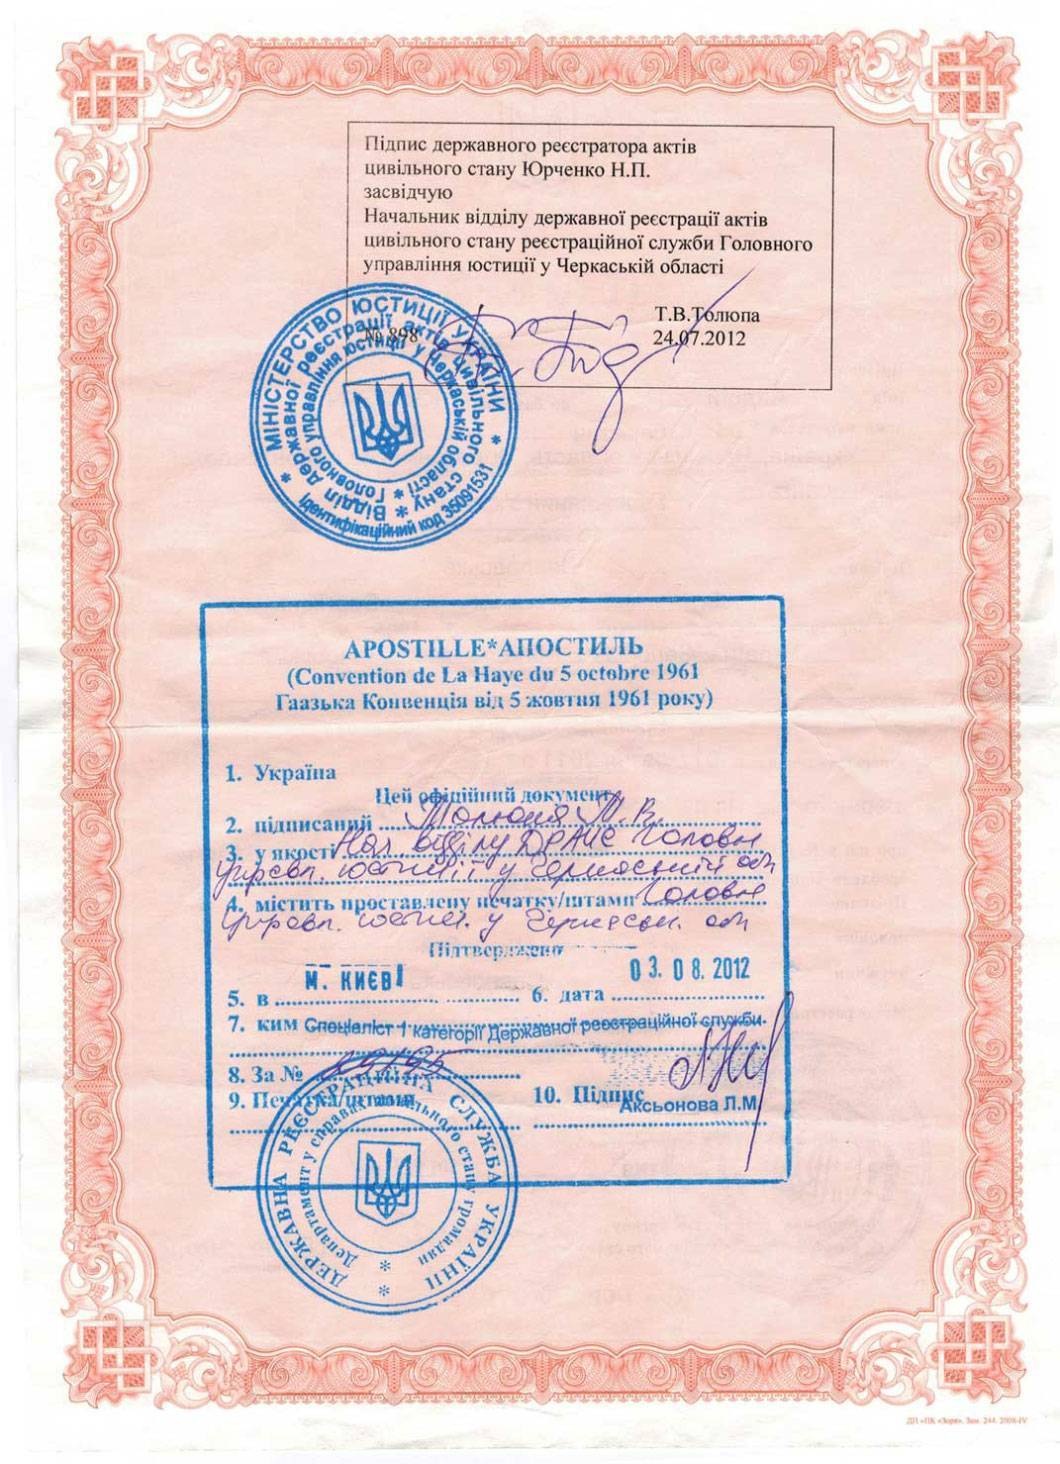 Підпис державного реєстратора актів
цивільного стану Юрченко Н.П.
засвідчую
Начальник відділу державної реєстрації актів
цивільного стану реєстраційної служби Головного
управління юстиції у Черкаській області
Т.В.Толюпа
№ 898 24.07.2012
* МІНІСТЕРСТВО ЮСТИЦІЇ УКРАЇНИ *
Ідентифікаційний код 35091531
* Відділ державної реєстрації актів цивільного стану
* Головного управління юстиції у Черкаській області
APOSTILLE*АПОСТИЛЬ
(Convention de La Haye du 5 octobre 1961
Гаазька Конвенція від 5 жовтня 1961 року)
1. Україна
Цей офіційний документ
2. підписаний Толюпа Т.В.
3. у якості Нач. відділу ДРАЦС Головн
управл. юстиції у Черкаській обл
4. містить проставлену печатку/штамп Головн
управл. юстиц. у Черкаськ. обл
Підтверджено
5. в М. КИЄВІ 6. дата 03.08.2012
7. ким Спеціаліст І категорії Державної реєстраційної служби
8. За №
9. Печатка/штамп 10. Підпис
Аксьонова Л.М.
* ДЕРЖАВНА РЕЄСТРАЦІЙНА СЛУЖБА УКРАЇНИ
* Департамент у справах цивільного стану громадян
ДП «ПК «Зоря». Зам. 244. 2008-IV